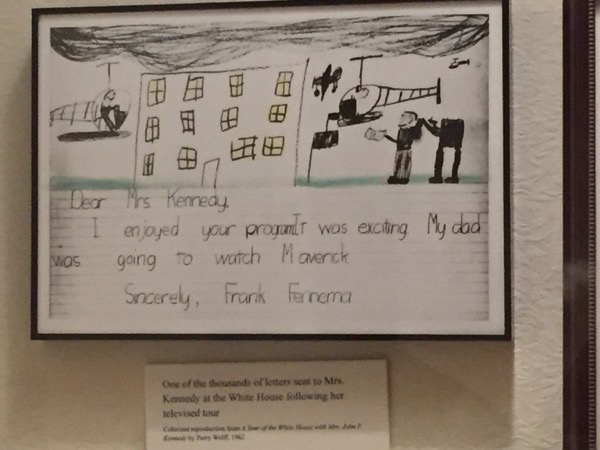 Dear Mrs. Kennedy,
I enjoyed your program It was exciting My dad
was going to watch Maverick
Sincerely, Frank Fennema
One of the thousands of letters sent to Mrs.
Kennedy at the White House following her
televised tour
Colorized reproduction from A Tour of the White House with Mrs. John F.
Kennedy by Perry Wolff, 1962